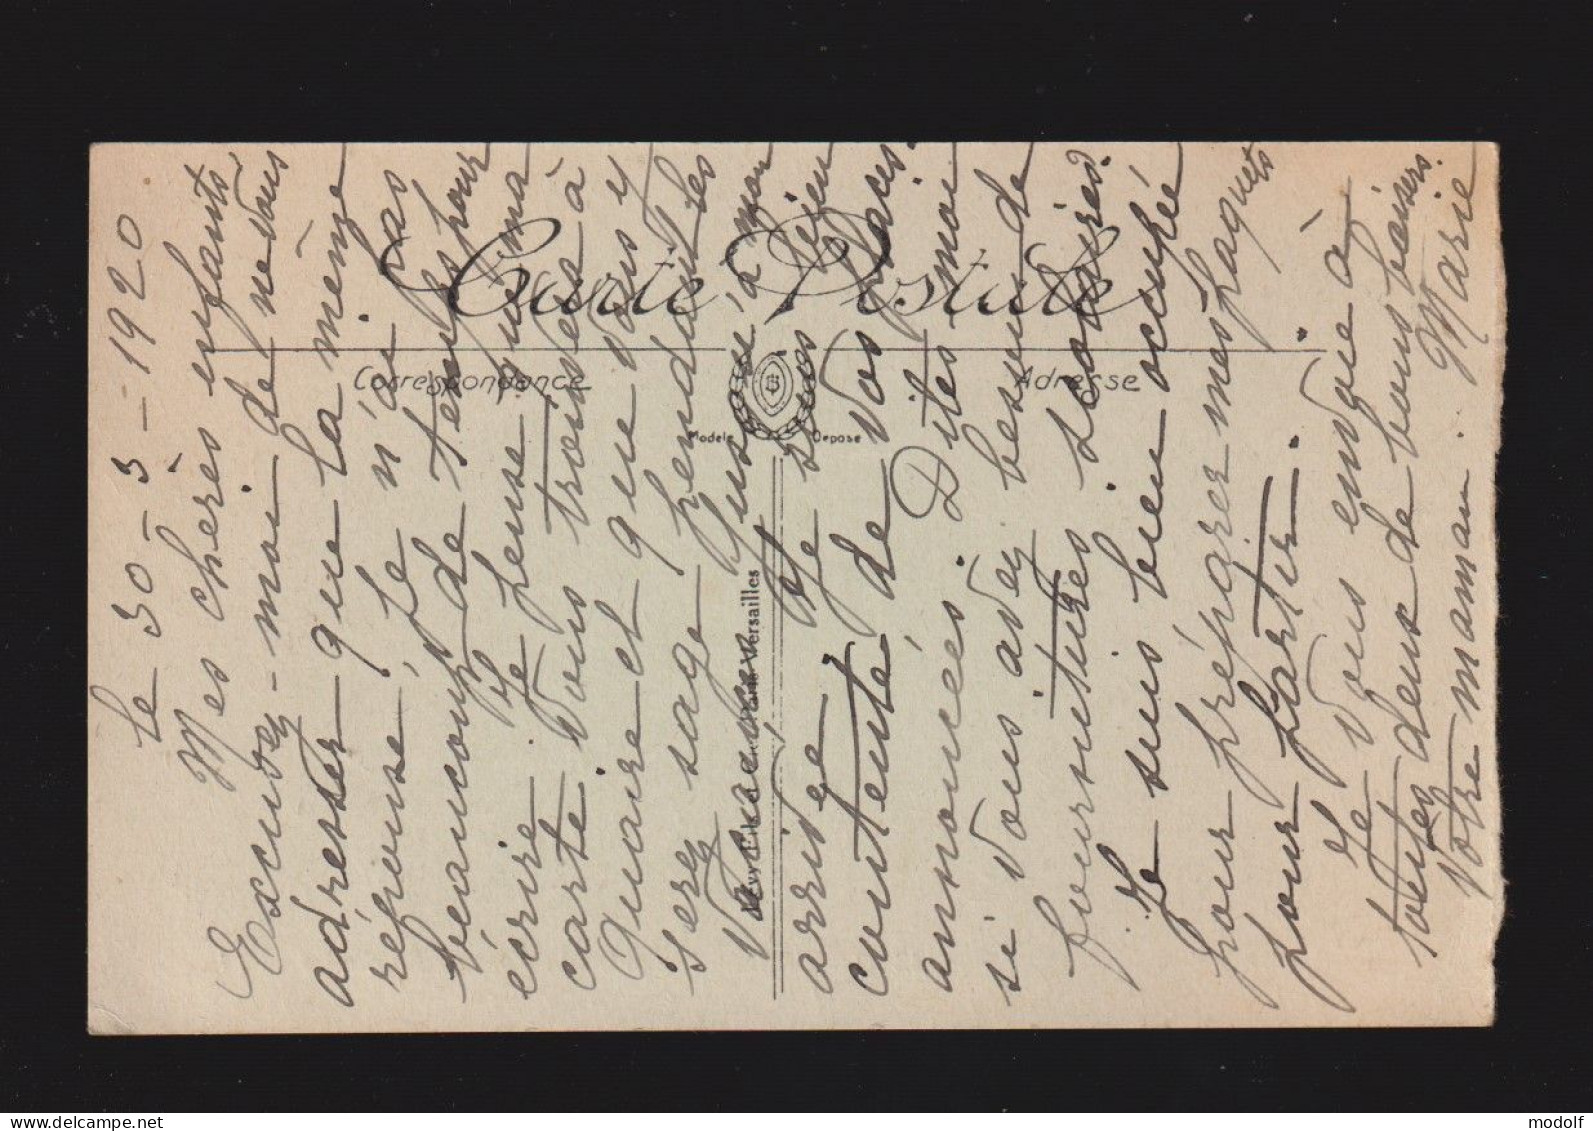 Le 30-3-1920
Mes chères enfants
Excusez-moi de ne vous
adresser que la même
réponse, je n'ai pas
beaucoup de temps pour
écrire. Je pense que ma
carte vous trouvera à
Quaire et que vous y
serez sage pendant les
vacances jusqu'à mon
arrivée. Je suis bien
contente de vos places
annoncées. Dites-moi
si vous avez besoin de
fournitures scolaires.
Je suis bien occupée
pour préparer mes paquets
pour partir.
Je vous envoie à
toutes deux de bons baisers.
Votre maman. Marie
Carte Postale
Correspondance
Adresse
Modèle Déposé
B
Versailles
www.delcampe.net
modolf